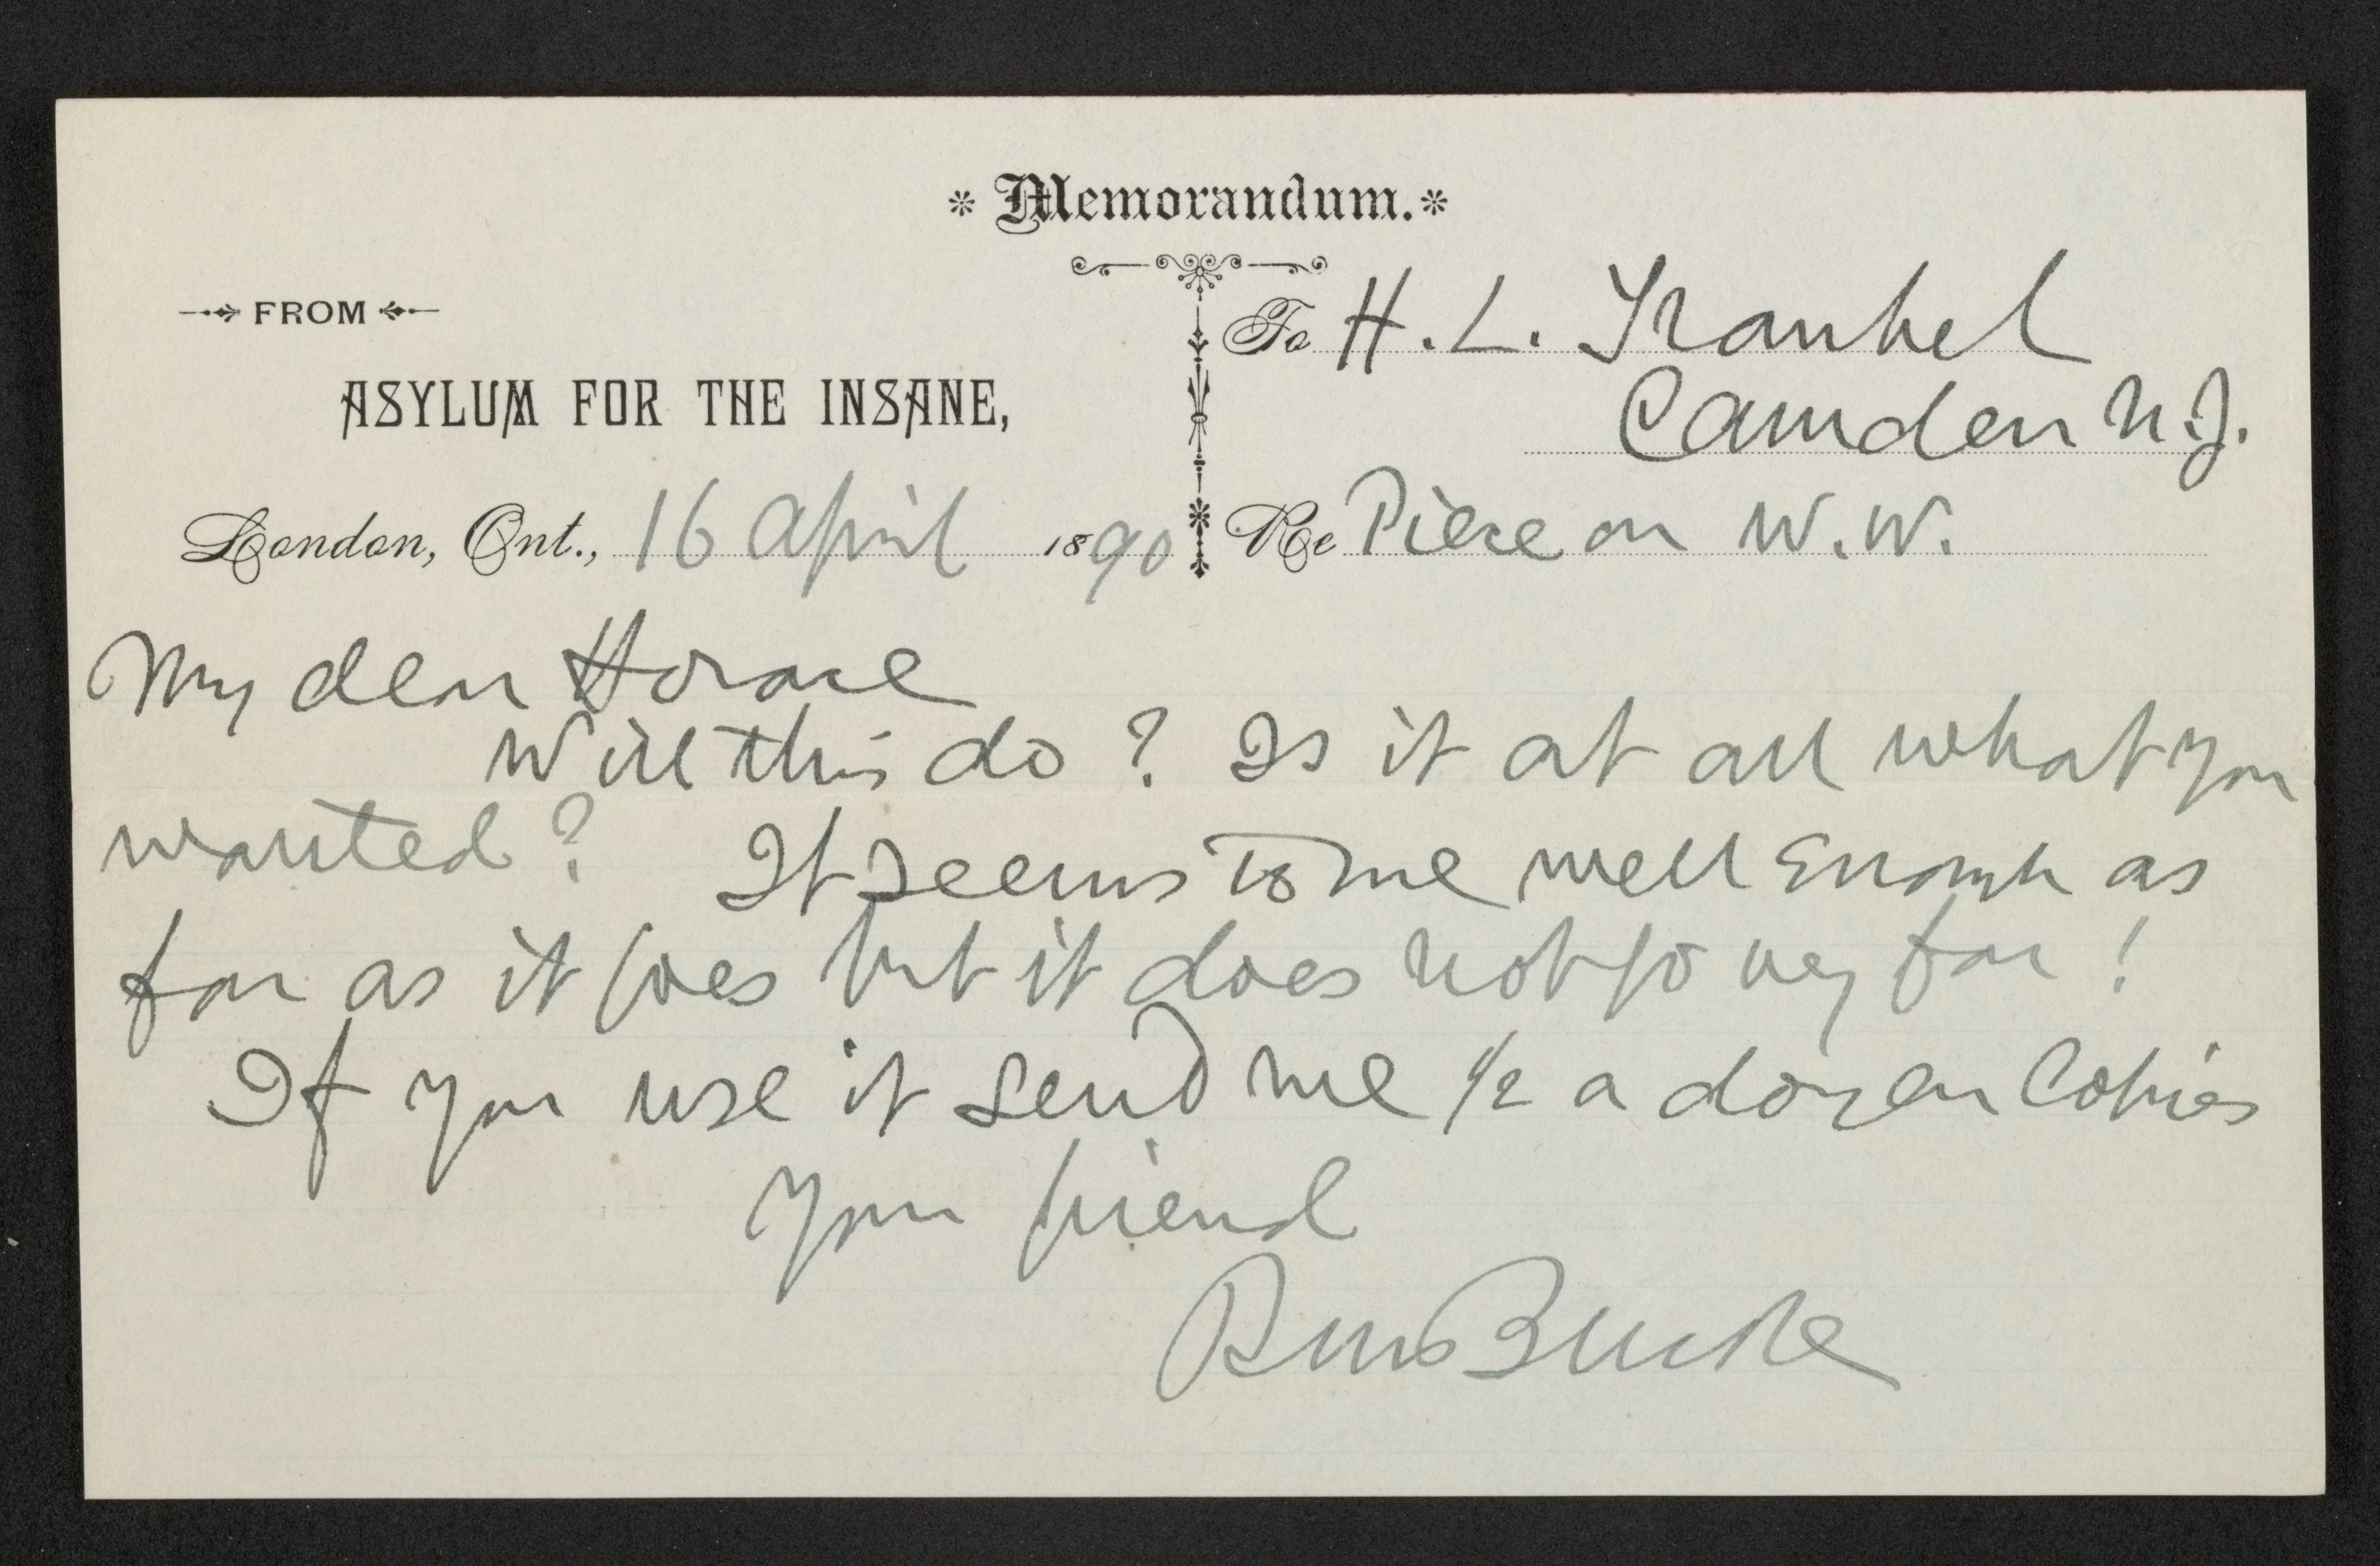 * Memorandum. *
FROM
ASYLUM FOR THE INSANE,
London, Ont., 16 April 1890
To H. L. Traubel
Camden N.J.
Re Piece on W. W.
My dear Horace
Will this do? Is it at all what you
wanted? It seems to me well enough as
far as it goes but it does not go very far!
If you use it send me 1/2 a dozen copies
Your friend
RM Bucke